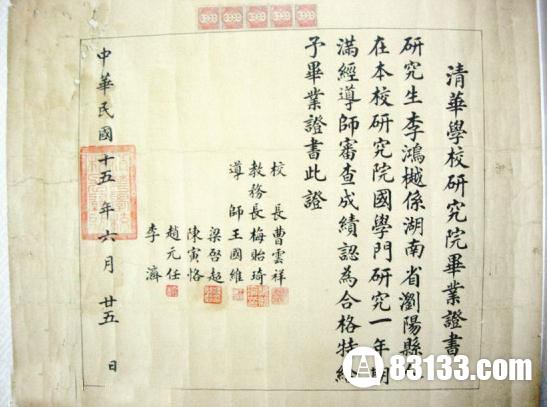 清華學校研究院畢業證書
研究生李鴻樾係湖南省瀏陽縣人
在本校研究院國學門研究一年期
滿經導師審查成績認為合格特給
予畢業證書此證
校長曹雲祥
教務長梅貽琦
導師王國維
梁啓超
陳寅恪
趙元任
李濟
中華民國十五年六月廿五日
83133.com